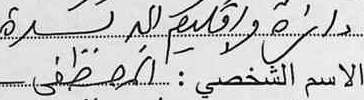 دائرة واقليم الد
الاسم الشخصي : المصطفى